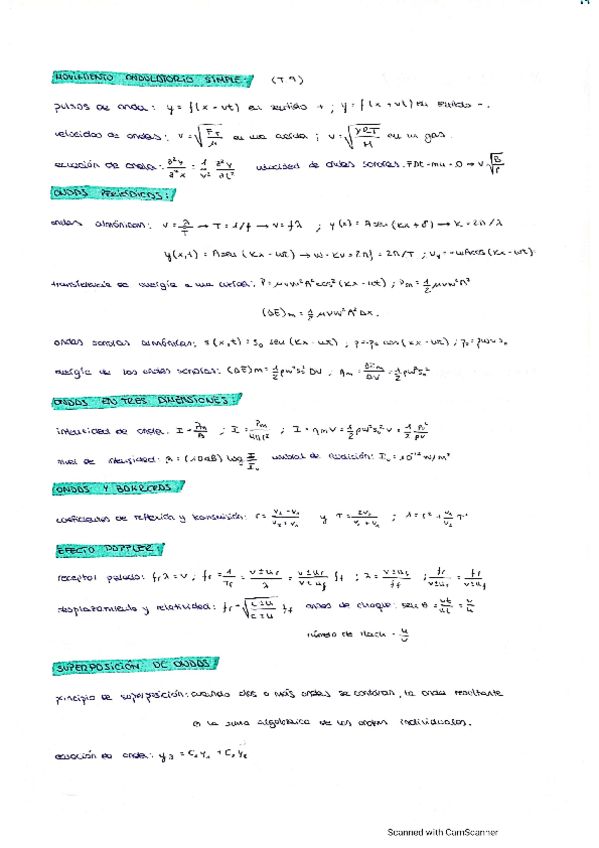 MOVIMIENTO ONDULATORIO SIMPLE: (T.9)
pulsos de onda: y = f(x - vt) en sentido + ; y = f(x + vt) en sentido -.
velocidad de ondas: v = √(F_T/μ) en una cuerda ; v = √(γRT/M) en un gas.
ecuación de onda: ∂²y/∂²x = 1/v² ∂²y/∂t² velocidad de ondas sonoras: v √(B/ρ)
ONDAS PERIÓDICAS:
ondas armónicas: v = λ/T → T = 1/f → v = fλ ; y(x) = A sen(kx + δ) → k = 2π/λ
y(x,t) = A sen(kx - ωt) → ω = kv = 2πf = 2π/T ; v_y = -ωA cos(kx - ωt).
transferencia de energía a una cuerda: P = μvω²A²cos²(kx - ωt) ; P_m = 1/2 μvω²A²
(ΔE)m = 1/2 μvω²A²Δx.
ondas sonoras armónicas: s(x,t) = s₀ sen(kx - ωt) ; p = p₀ cos(kx - ωt) ; p₀ = ρωv s₀
energía de las ondas sonoras: (ΔE)m = 1/2 ρω²s₀² ΔV ; η_m = ΔE_m/ΔV = 1/2 ρω²s₀²
ONDAS EN TRES DIMENSIONES:
intensidad de onda: I = P_m/A ; I = P_m/4πr² ; I = η_m v = 1/2 ρω²s₀² v = 1/2 p₀²/ρv
nivel de intensidad: β = (10dB) log I/I₀ umbral de audición: I₀ = 10⁻¹² W/m²
ONDAS Y BARRERAS
coeficientes de reflexión y transmisión: r = (v₂ - v₁)/(v₂ + v₁) y T = 2v₂/(v₁ + v₂) ; 1 = r² + v₁/v₂ T²
EFECTO DOPPLER:
f_rλ = v ; f_r = 1/T_r = (v ± u_r)/λ = (v ± u_r)/(v ± u_f) f_f ; λ = (v ± u_f)/f_f ; f_r/(v ± u_r) = f_f/(v ± u_f)
desplazamiento y relatividad: f_r = √((c ± u)/(c ± u)) f_f ondas de choque: sen θ = vt/ut = v/u
número de Mach = u/v
SUPERPOSICIÓN DE ONDAS:
principio de superposición: cuando dos o más ondas se combinan, la onda resultante
es la suma algebraica de las ondas individuales.
ecuación de onda: y₃ = C₁y₁ + C₂y₂
Scanned with CamScanner